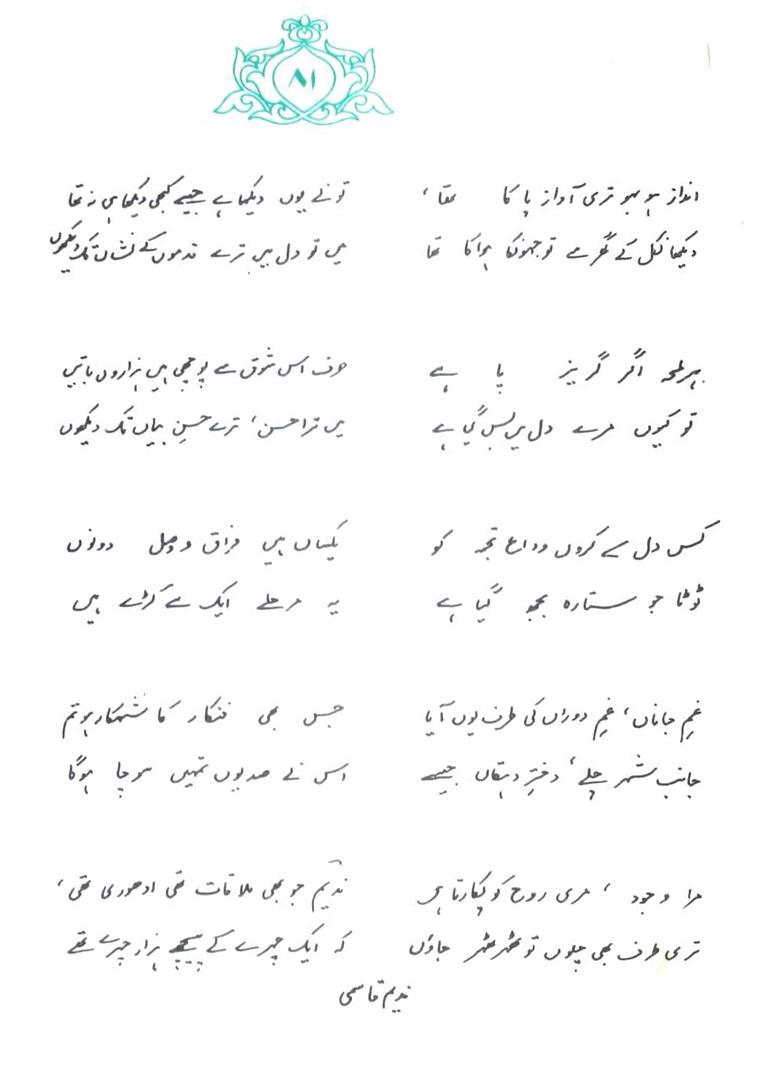 ۸۱
انداز ہو بہو تری آواز پا کا تھا،
دیکھا نکل کے گھر سے تو جھونکا ہوا کا تھا
تو نے یوں دیکھا ہے جیسے کبھی دیکھا ہی نہ تھا
میں تو دل میں ترے قدموں کے نشاں تک دیکھوں
ہر لمحہ اگر گریز پا ہے
تو کیوں مرے دل میں بس گیا ہے
صرف اس شوق سے پوچھی ہیں ہزاروں باتیں
میں ترا حسن، ترے حسنِ بیاں تک دیکھوں
کس دل سے کروں وداع تجھ کو
ٹوٹا جو ستارہ بجھ گیا ہے
یکساں ہیں فراق و وصل دونوں
یہ مرحلے ایک سے کڑے ہیں
غمِ جاناں، غمِ دوراں کی طرف یوں آیا
جانبِ شہر چلے، دخترِ دہقاں جیسے
جس بھی فنکار کا شہکار ہو تم
اس نے صدیوں تمہیں سوچا ہوگا
مرا وجود، مری روح کو پکارتا ہے
تری طرف بھی چلوں تو ٹھہر ٹھہر جاؤں
ندیم جو بھی ملاقات تھی ادھوری تھی،
کہ ایک چہرے کے پیچھے ہزار چہرے تھے
ندیم قاسمی